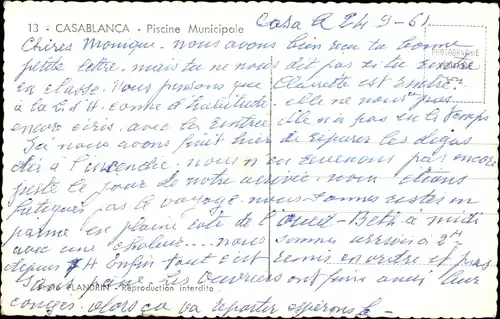 13 - CASABLANCA - Piscine Municipale
Casa le 24-9-61
Chères Monique. nous avons bien eu ta bonne
petite lettre. mais tu ne nous dit pas si tu
en classe. Nous pensons que Claudette est entrée
à la comme d'habitude. elle ne nous pas
encore écris. avec la rentrée elle n'a pas eu le temps
Ici nous avons finit hier de réparer les dégas
à l'incendie. nous n'en revenons pas encore
juste le jour de notre arrivée. nous étions
fatigués par le voyage. nous sommes restés en
panne en plaine de l'Oued-Beth à midi
avec une chaleur... nous sommes arrivés à 2H
depuis 7H enfin tout est remis en ordre et puis
Les ouvriers ont fini aussi leur
congés. alors ça va repartir espérons le -
FLANDRIN - Reproduction interdite